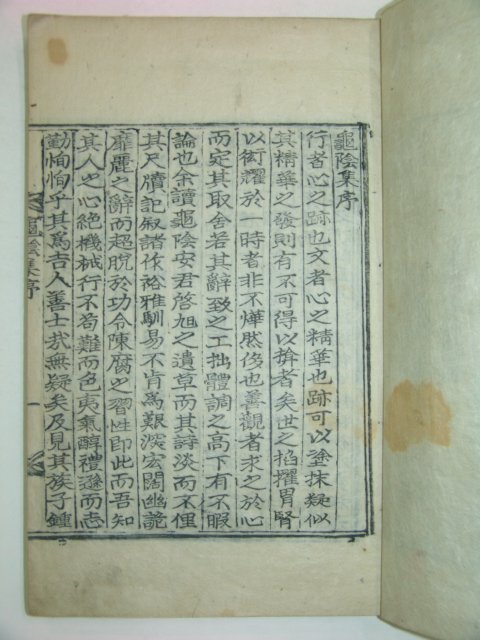 龜陰集序
行者心之跡也文者心之精華也跡可以塗抹疑似
其精華之發則有不可得以揜者矣世之掐擢胃腎
以衒耀於一時者非不燁然侈也善觀者求之於心
而定其取舍若其辭致之工拙體調之高下有不暇
論也余讀龜陰安君啓旭之遺草而其詩淡而不俚
其尺牘記敍諸作裕雅馴易不肯爲艱深宏闊幽詭
靡麗之辭而超脫於功令陳腐之習性卽此而吾知
其人之心絶機械行不苟難而色夷氣醇禮遜而志
勤恂恂乎其爲吉人善士我無疑矣及見其族子鍾
龜陰集序
一